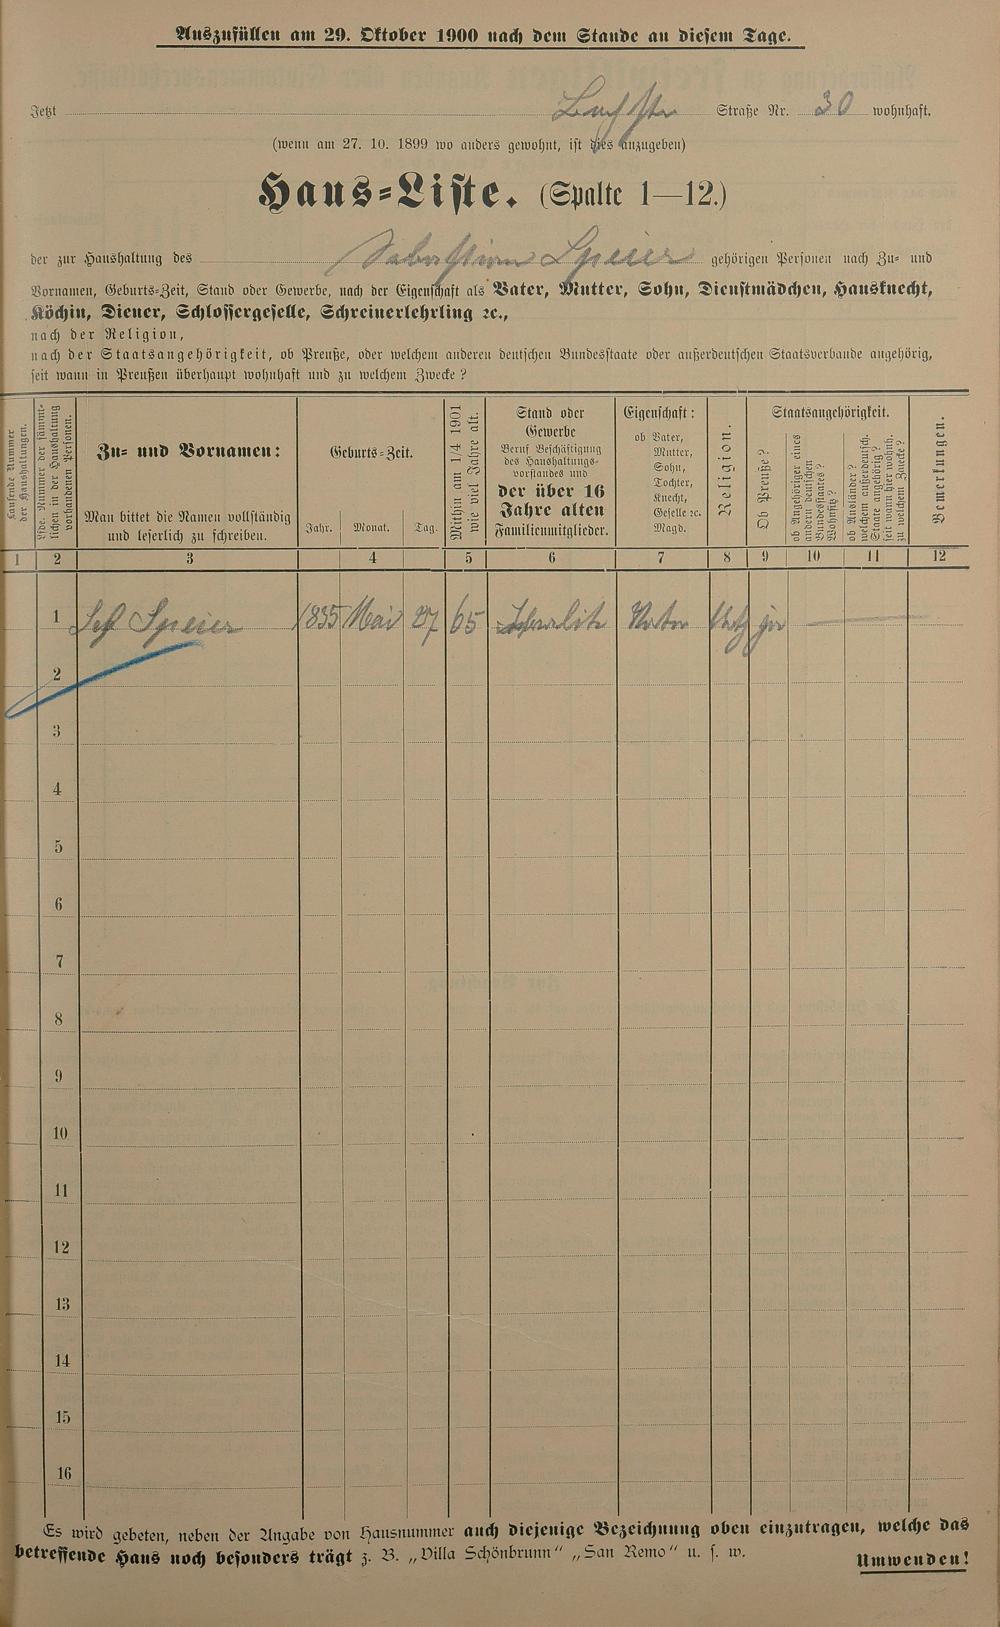 Auszufüllen am 29. Oktober 1900 nach dem Stande an diesem Tage.
Jetzt Bachstr Straße Nr. 30 wohnhaft.
(wenn am 27. 10. 1899 wo anders gewohnt, ist dies anzugeben)
Haus-Liste. (Spalte 1—12.)
der zur Haushaltung des Sebastian Speier gehörigen Personen nach Zu- und
Vornamen, Geburts-Zeit, Stand oder Gewerbe, nach der Eigenschaft als Vater, Mutter, Sohn, Dienstmädchen, Hausknecht,
Köchin, Diener, Schlossergeselle, Schreinerlehrling ꝛc.,
nach der Religion,
nach der Staatsangehörigkeit, ob Preuße, oder welchem anderen deutschen Bundesstaate oder außerdeutschen Staatsverbande angehörig,
seit wann in Preußen überhaupt wohnhaft und zu welchem Zwecke?
Laufende Nummer
der Haushaltungen.
Lfde. Nummer der sämmt-
lichen in der Haushaltung
vorhandenen Personen.
Zu- und Vornamen:
Man bittet die Namen vollständig
und leserlich zu schreiben.
Geburts-Zeit.
Jahr. Monat. Tag.
Mithin am 1/4 1901
wie viel Jahre alt.
Stand oder
Gewerbe
Beruf Beschäftigung
des Haushaltungs-
vorstandes und
der über 16
Jahre alten
Familienmitglieder.
Eigenschaft:
ob Vater,
Mutter,
Sohn,
Tochter,
Knecht,
Geselle ꝛc.
Magd.
Religion.
Staatsangehörigkeit.
Ob Preuße?
ob Angehöriger eines
andern deutschen
Bundesstaates?
Wohnsitz?
ob Ausländer?
welchem außerdeutsch.
Staate angehörig?
seit wann hier wohnh.
zu welchem Zwecke?
Bemerkungen.
1 2 3 4 5 6 7 8 9 10 11 12
1 Seb Speier 1835 Mai 27 65 Vater ja
2
3
4
5
6
7
8
9
10
11
12
13
14
15
16
Es wird gebeten, neben der Angabe von Hausnummer auch diejenige Bezeichnung oben einzutragen, welche das
betreffende Haus noch besonders trägt z. B. „Villa Schönbrunn" „San Remo" u. s. w.
Umwenden!